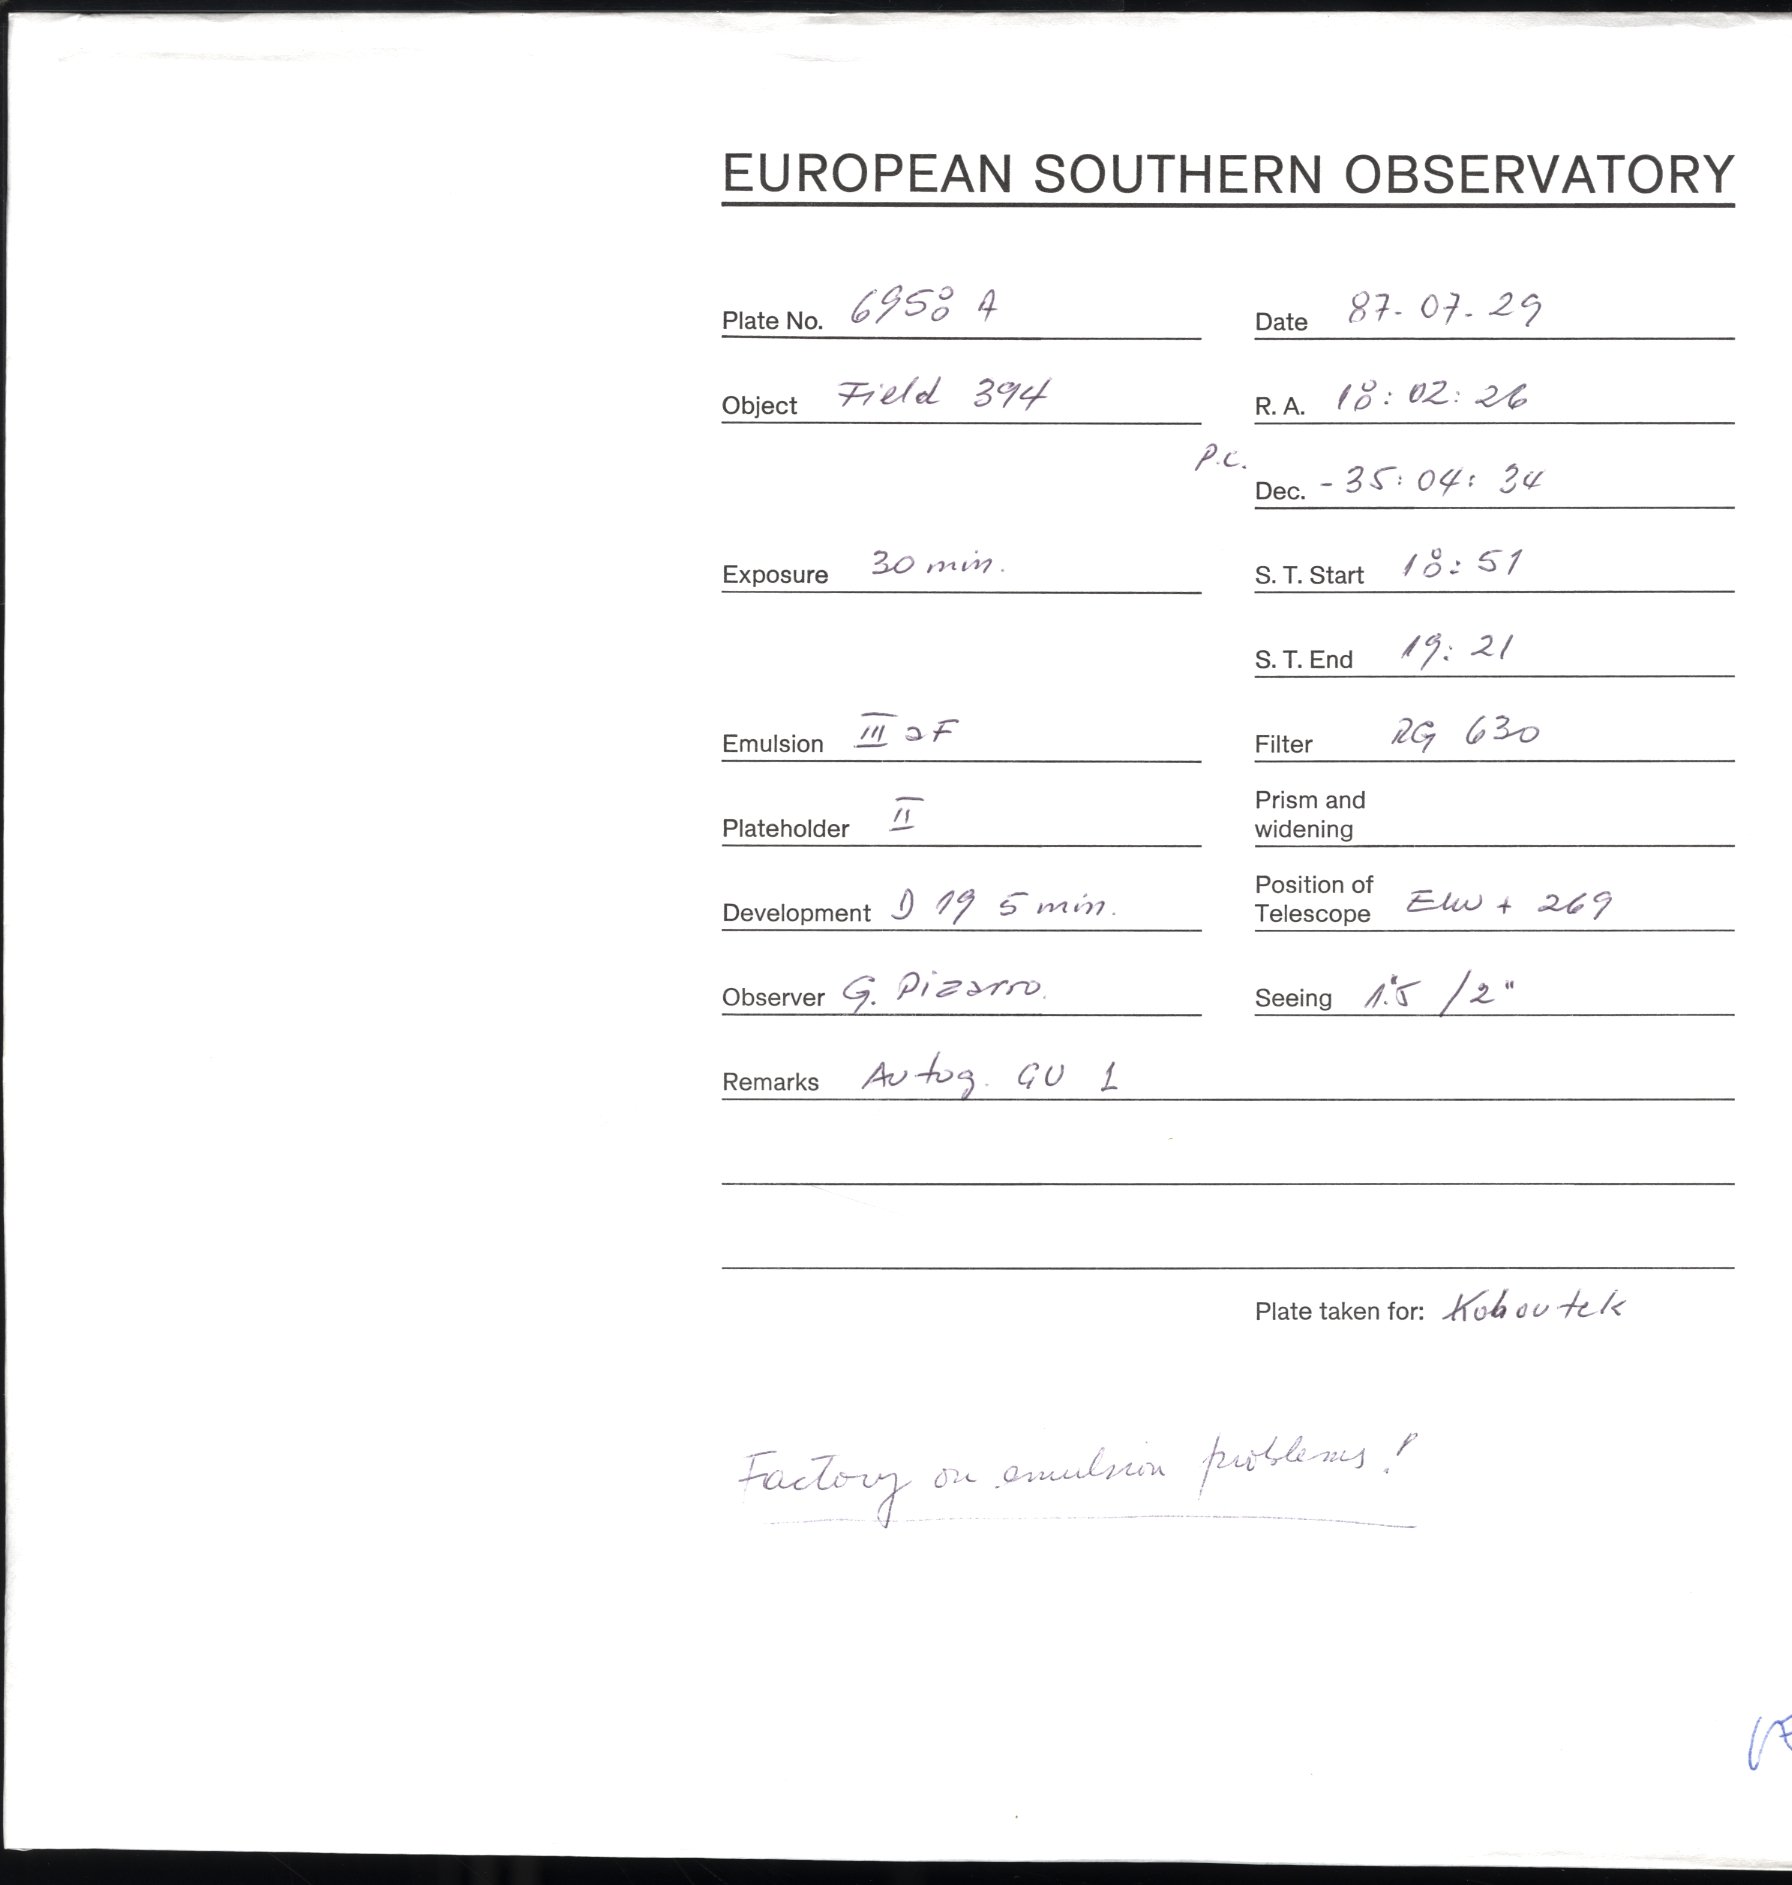 EUROPEAN SOUTHERN OBSERVATORY
Plate No. 6958 A
Date 87-07-29
Object Field 394
R. A. 18:02:26
P.C.
Dec. -35:04:34
Exposure 30 min.
S. T. Start 18:51
S. T. End 19:21
Emulsion III aF
Filter RG 630
Plateholder II
Prism and
widening
Development D 19 5 min.
Position of
Telescope EW + 269
Observer G. Pizarro.
Seeing 1"5 / 2"
Remarks Autog. GU 1
Plate taken for: Kohoutek
Factory on emulsion problems!